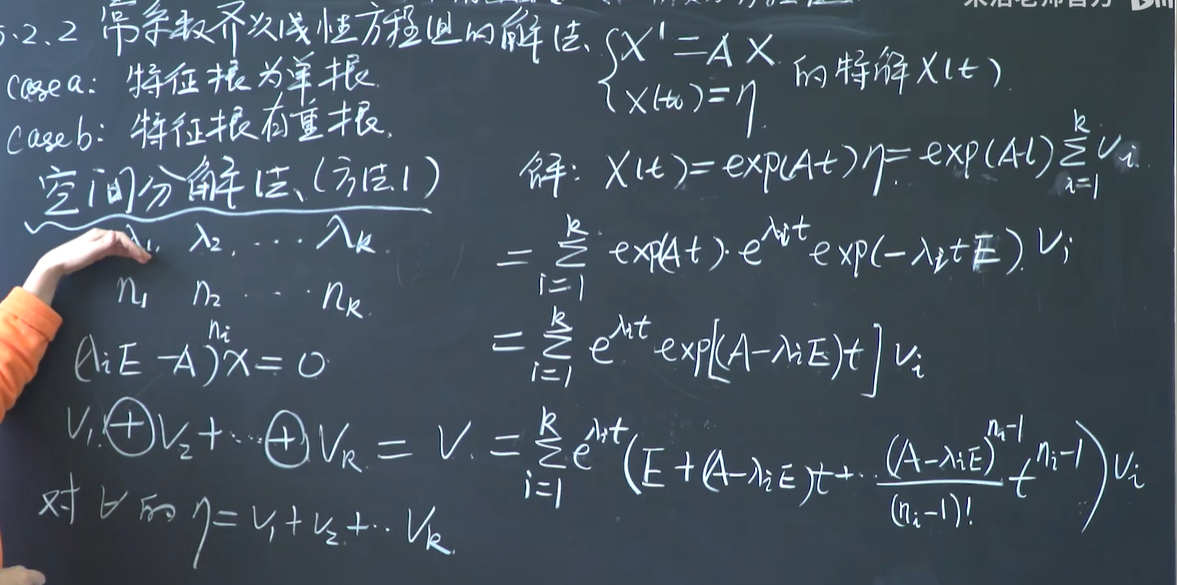 5.2.2 常系数齐次线性方程组的解法.
case a: 特征根为单根.
case b: 特征根有重根.
空间分解法.(方法1)
λ₁, λ₂, ... λₖ.
n₁ n₂ ... nₖ.
(λᵢE - A)^{nᵢ} x = 0
V₁ ⊕ V₂ + ... ⊕ Vₖ = V.
对 ∀ 的 η = v₁ + v₂ + ... vₖ.
{ X' = AX
{ X(t₀) = η 的特解 X(t).
解: X(t) = exp(At) η = exp(At) ∑_{i=1}^{k} vᵢ
= ∑_{i=1}^{k} exp(At) · e^{λᵢt} exp(-λᵢtE) · vᵢ
= ∑_{i=1}^{k} e^{λᵢt} exp[(A-λᵢE)t] vᵢ
= ∑_{i=1}^{k} e^{λᵢt} (E + (A-λᵢE)t + ... \frac{(A-λᵢE)^{nᵢ-1}}{(nᵢ-1)!} t^{nᵢ-1}) vᵢ